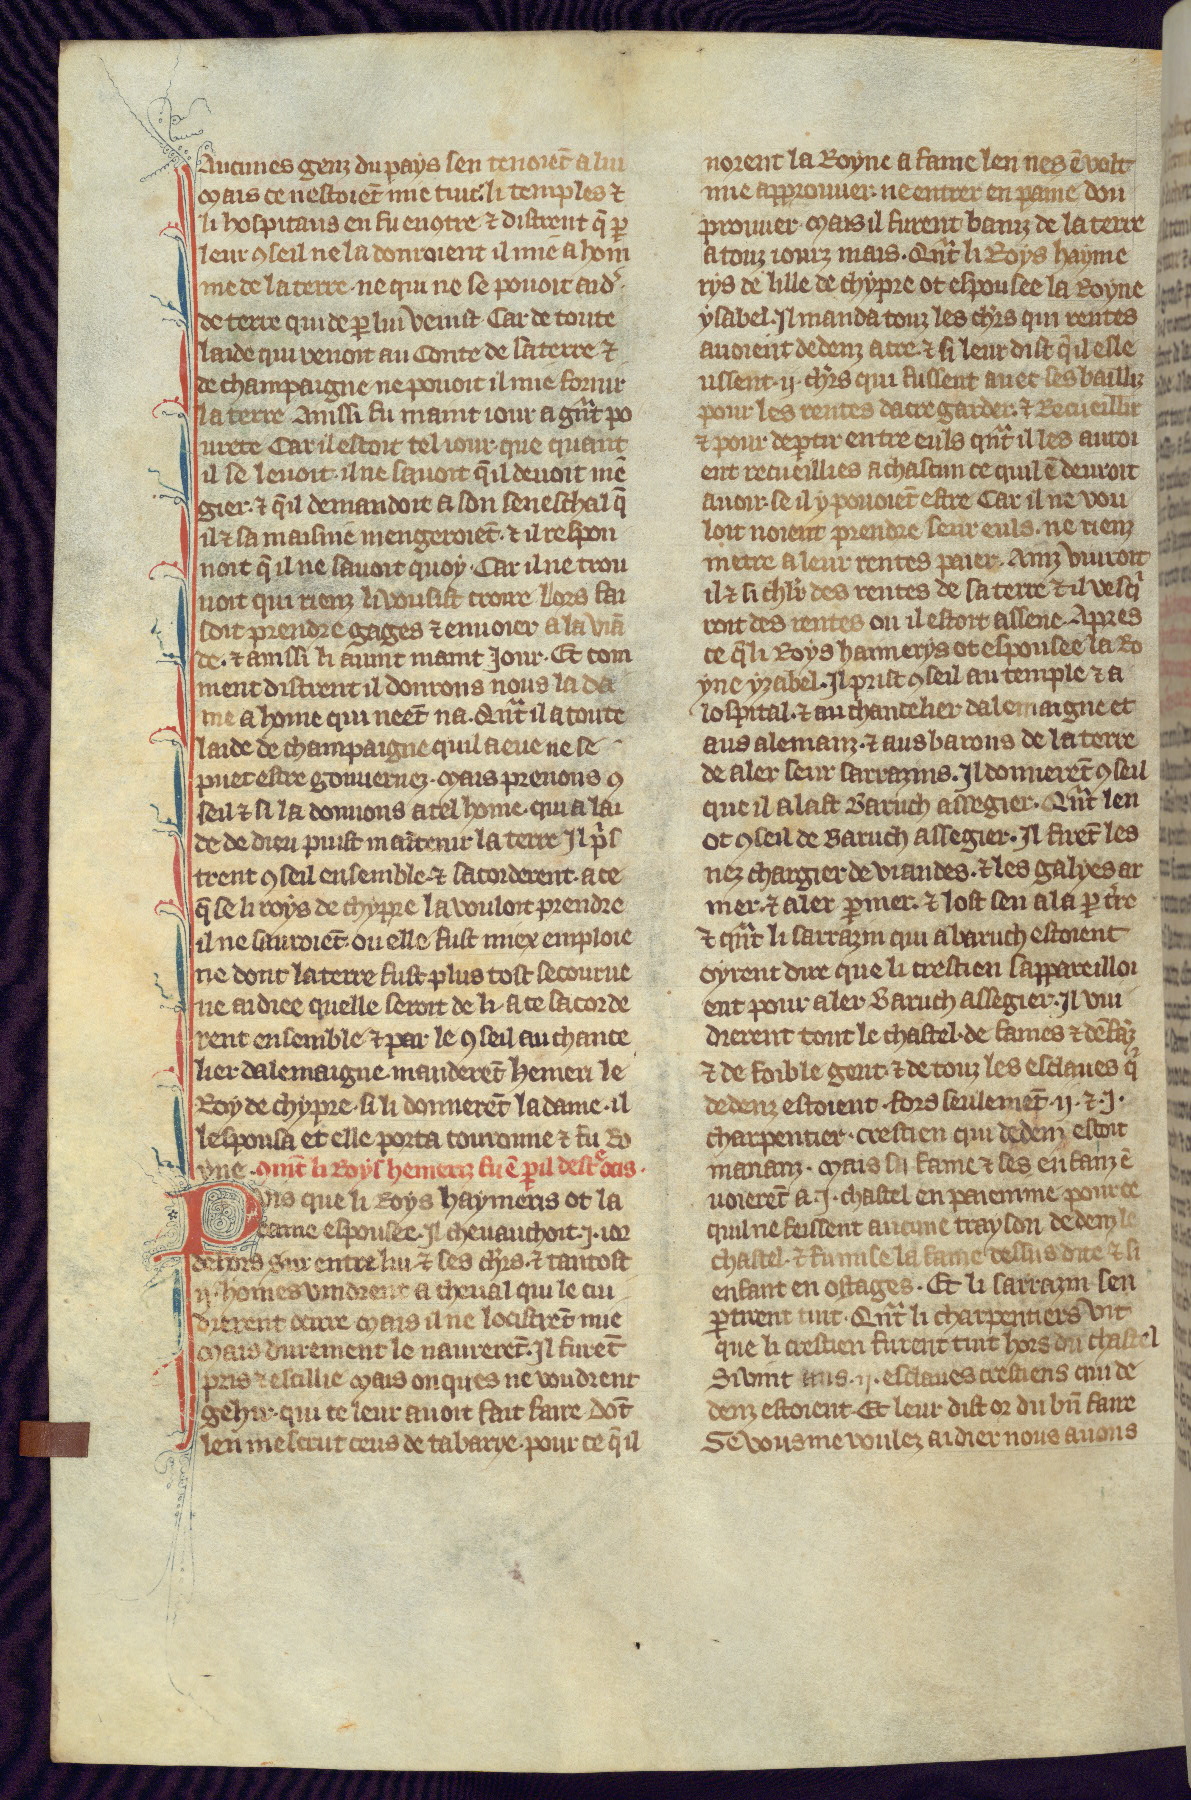 Aucunes genz du pays sen tenoiēt a lui
Mais ce nestoiēt mie tuit. li temples ⁊
li hospitaus en fu enꝯtre ⁊ distrent q̄ ꝑ
leur ꝯseil ne la donroient il mie a hom
me de la terre. ne qui ne se pouoit aid᷑
de terre qui de ꝑ lui venist Car de toute
laide qui venoit au Conte de sa terre ⁊
de champaigne ne pouoit il mie fornir
la terre Ainssi fu maint iour a gñt po
urete Car il estoit tel iour que quant
il se leuoit. il ne sauoit q̄ il deuoit mē
gier. ⁊ q̄ il demandoit a son seneschal q̄
il ⁊ sa maisnie mengeroiēt. ⁊ il respon
noit q̄ il ne sauoit quoy. Car il ne trou
uoit qui rienz li vousist croire Lors fai
soit prendre gages ⁊ enuoier a la viā
de. ⁊ ainssi li auint maint Jour. Et com
ment distrent il donrons nous la da
me a home qui neēt na. Qñt il a toute
laide de champaigne quil a eue ne se
puet estre gouuernez. Mais prenons ꝯ
seil ⁊ si la donnons a tel home. qui a lai
de de dieu puist maītenir la terre Il p̄is
trent ꝯseil ensemble ⁊ sacorderent. a ce
q̄ se li roys de chypre la vouloit prendre
il ne sauroiēt. ou elle fust miex emploie
ne dont la terre fust plus tost secourue
ne aidiee quelle seroit de li. a ce sacorde
rent ensemble ⁊ par le ꝯseil au chance
lier dalemaigne. manderēt Hemeri le
Roy de chypre. si li donnerēt la dame. il
lespousa et elle porta couronne ⁊ fu Ro
yne. Qmt li Roys hemeriz fu ē ꝑil destᵉ ocis.
Puis que li Roys haymeris ot la
fame espousee. Il cheuauchoit .J. ior
dehors Sur entre lui ⁊ ses chrs. ⁊ tantost
ij. homes vindrent a cheual qui le cui
dierent ocirre Mais il ne locistrēt mie
Mais durement le naurerēt. Il furēt
pris ⁊ escillie Mais onques ne voudrent
gehir. qui ce leur auoit fait faire. Dōt
len mescrut ceus de tabarye. pour ce q̄ il
norent la Royne a fame len nes ē volt
mie approuuer. ne entrer en paine dou
prouuer. Mais il furent baniz de la terre
a touz iourz mais. Qñt li Roys hayme
rys de lille de chypre ot espousee la Royne
ysabel. Il manda touz les chrs qui rentes
auoient dedenz acre. ⁊ si leur dist q̄ il esle
ussent .ij. chrs qui fussent auec ses bailliz
pour les rentes dacre garder. ⁊ Recueillir
⁊ pour deꝑtir entre euls qñt il les auroi
ent recueillies a chascun ce quil ē deuroit
auoir. se il y pouoiēt estre Car il ne vou
loit noient prendre seur euls. ne rienz
metre a leur rentes paier. Ainz viuroit
il ⁊ si chlr des rentes de sa terre ⁊ il vesq̄
roit des rentes ou il estoit assene. Apres
ce q̄ li Roys haimerys ot espousee la Ro
yne yzabel. Il prist ꝯseil au temple ⁊ a
lospital. ⁊ au chancelier dalemaigne et
aus alemanz. ⁊ aus barons de la terre
de aler seur sarrazins. Il donnerēt ꝯseil
que il alast Baruch assegier. Qñt len
ot ꝯseil de Baruch assegier. Il firēt les
nez chargier de viandes. ⁊ les galyes ar
mer. ⁊ aler ꝑ mer. ⁊ lost sen ala ꝑ t̄re
⁊ qñt li sarrazin qui a baruch estoient
oyrent dire que li crestien sappareilloi
ent pour aler Baruch assegier. Il vui
dierent tout le chastel. de fames ⁊ dēfāz
⁊ de foible gent. ⁊ de touz les esclaues q̄
dedenz estoient. fors seulemēt .ij. ⁊ .J.
charpentier. crestien qui dedenz estoit
mananz. Mais sa fame ⁊ ses enfanz ē
uoierēt a .J. chastel en paiennie pour ce
quil ne feissent aucune trayson dedenz le
chastel. ⁊ fu mise la fame dessus dite ⁊ si
enfant en ostages. Et li sarrazin sen
ꝑtirent tuit. Qñt li charpentiers vit
que li crestien furent tuit hors du chastel
Si vint aus .ij. esclaues crestiens qui de
denz estoient. Et leur dist or du bn̄ faire
Se vous me voulez aidier nous auons